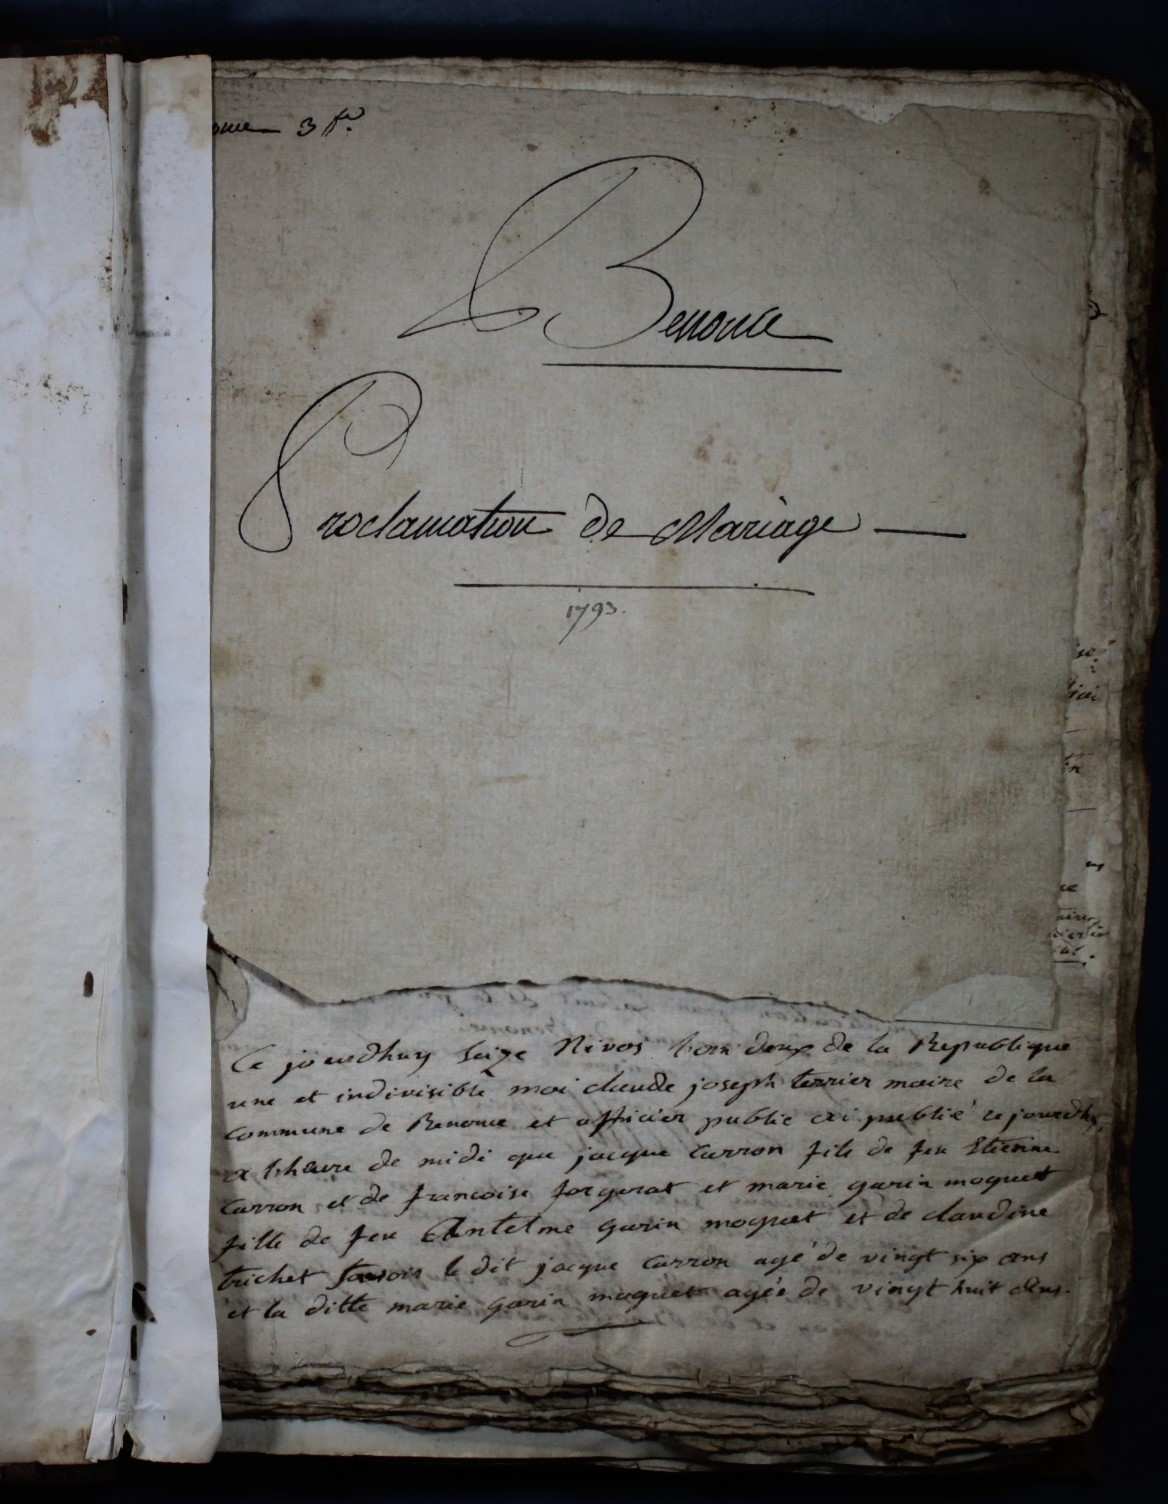 3
Benonce
Proclamation de Mariage
1793.
Ce jourdhuy seize Nivos lan deux de la Republique
une et indivisible moi claude joseph terrier maire de la
commune de Benonce et officier public ai publié cejourdhuy
a lheure de midi que jacque Carron fils de feu Etienne
Carron et de francoise forgerat et marie garin moquet
fille de feu Antelme garin moquet et de claudine
trichet le dit jacque Carron agé de vingt six ans
et la ditte marie garin moquet agée de vingt huit ans.